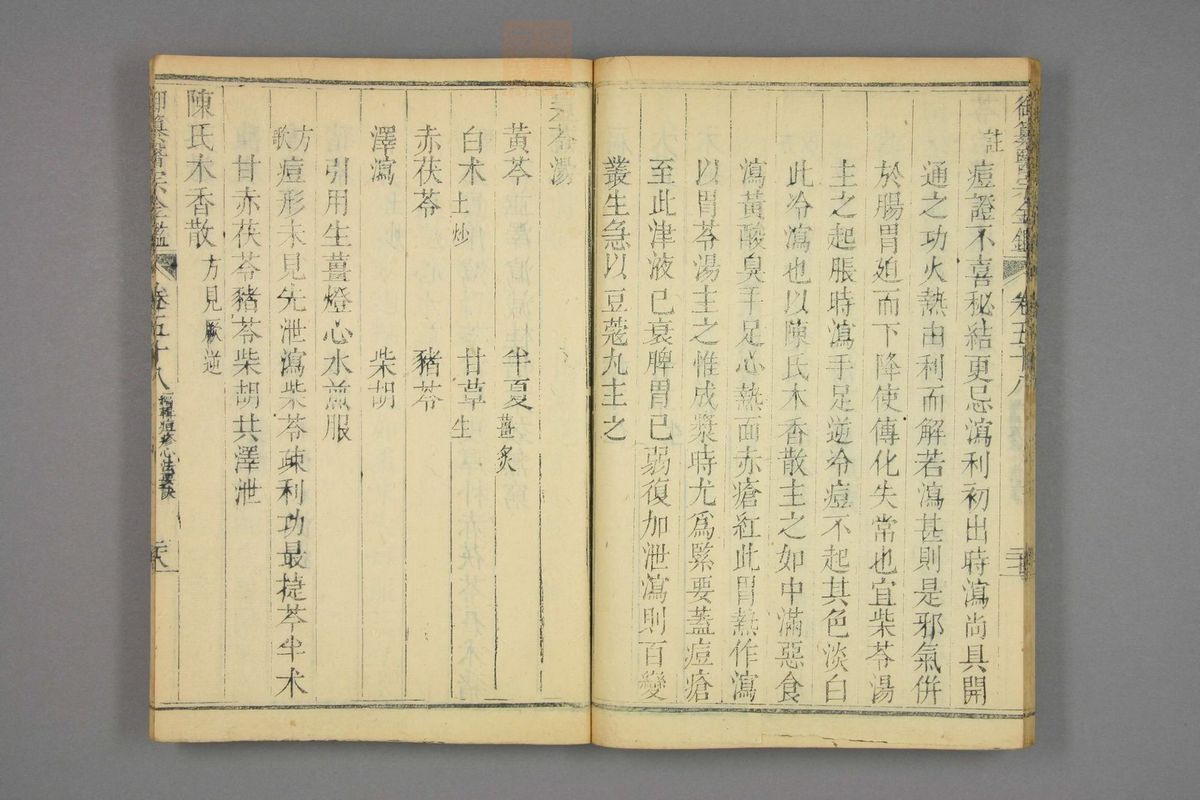 御纂醫宗金鑑 卷五十八
註 痘證不喜秘結更忌瀉利初出時瀉尚具開
通之功火熱由利而解若瀉甚則是邪氣併
於腸胃迫而下降使傳化失常也宜柴苓湯
主之起脹時瀉手足逆冷痘不起其色淡白
此冷瀉也以陳氏木香散主之如中滿惡食
瀉黃酸臭手足心熱面赤瘡紅此胃熱作瀉
以胃苓湯主之惟成漿時尤爲緊要蓋痘瘡
至此津液已衰脾胃已弱復加泄瀉則百變
叢生急以豆蔻丸主之
苓湯
黃芩 半夏薑炙
白朮土炒 甘草生
赤茯苓 豬苓
澤瀉 柴胡
引用生薑燈心水煎服
方歌 痘形未見先泄瀉柴苓疎利功最捷芩半朮
甘赤茯苓豬苓柴胡共澤泄
陳氏木香散方見厥逆
御纂醫宗金鑑 卷五十八 編種痘疹心法要訣